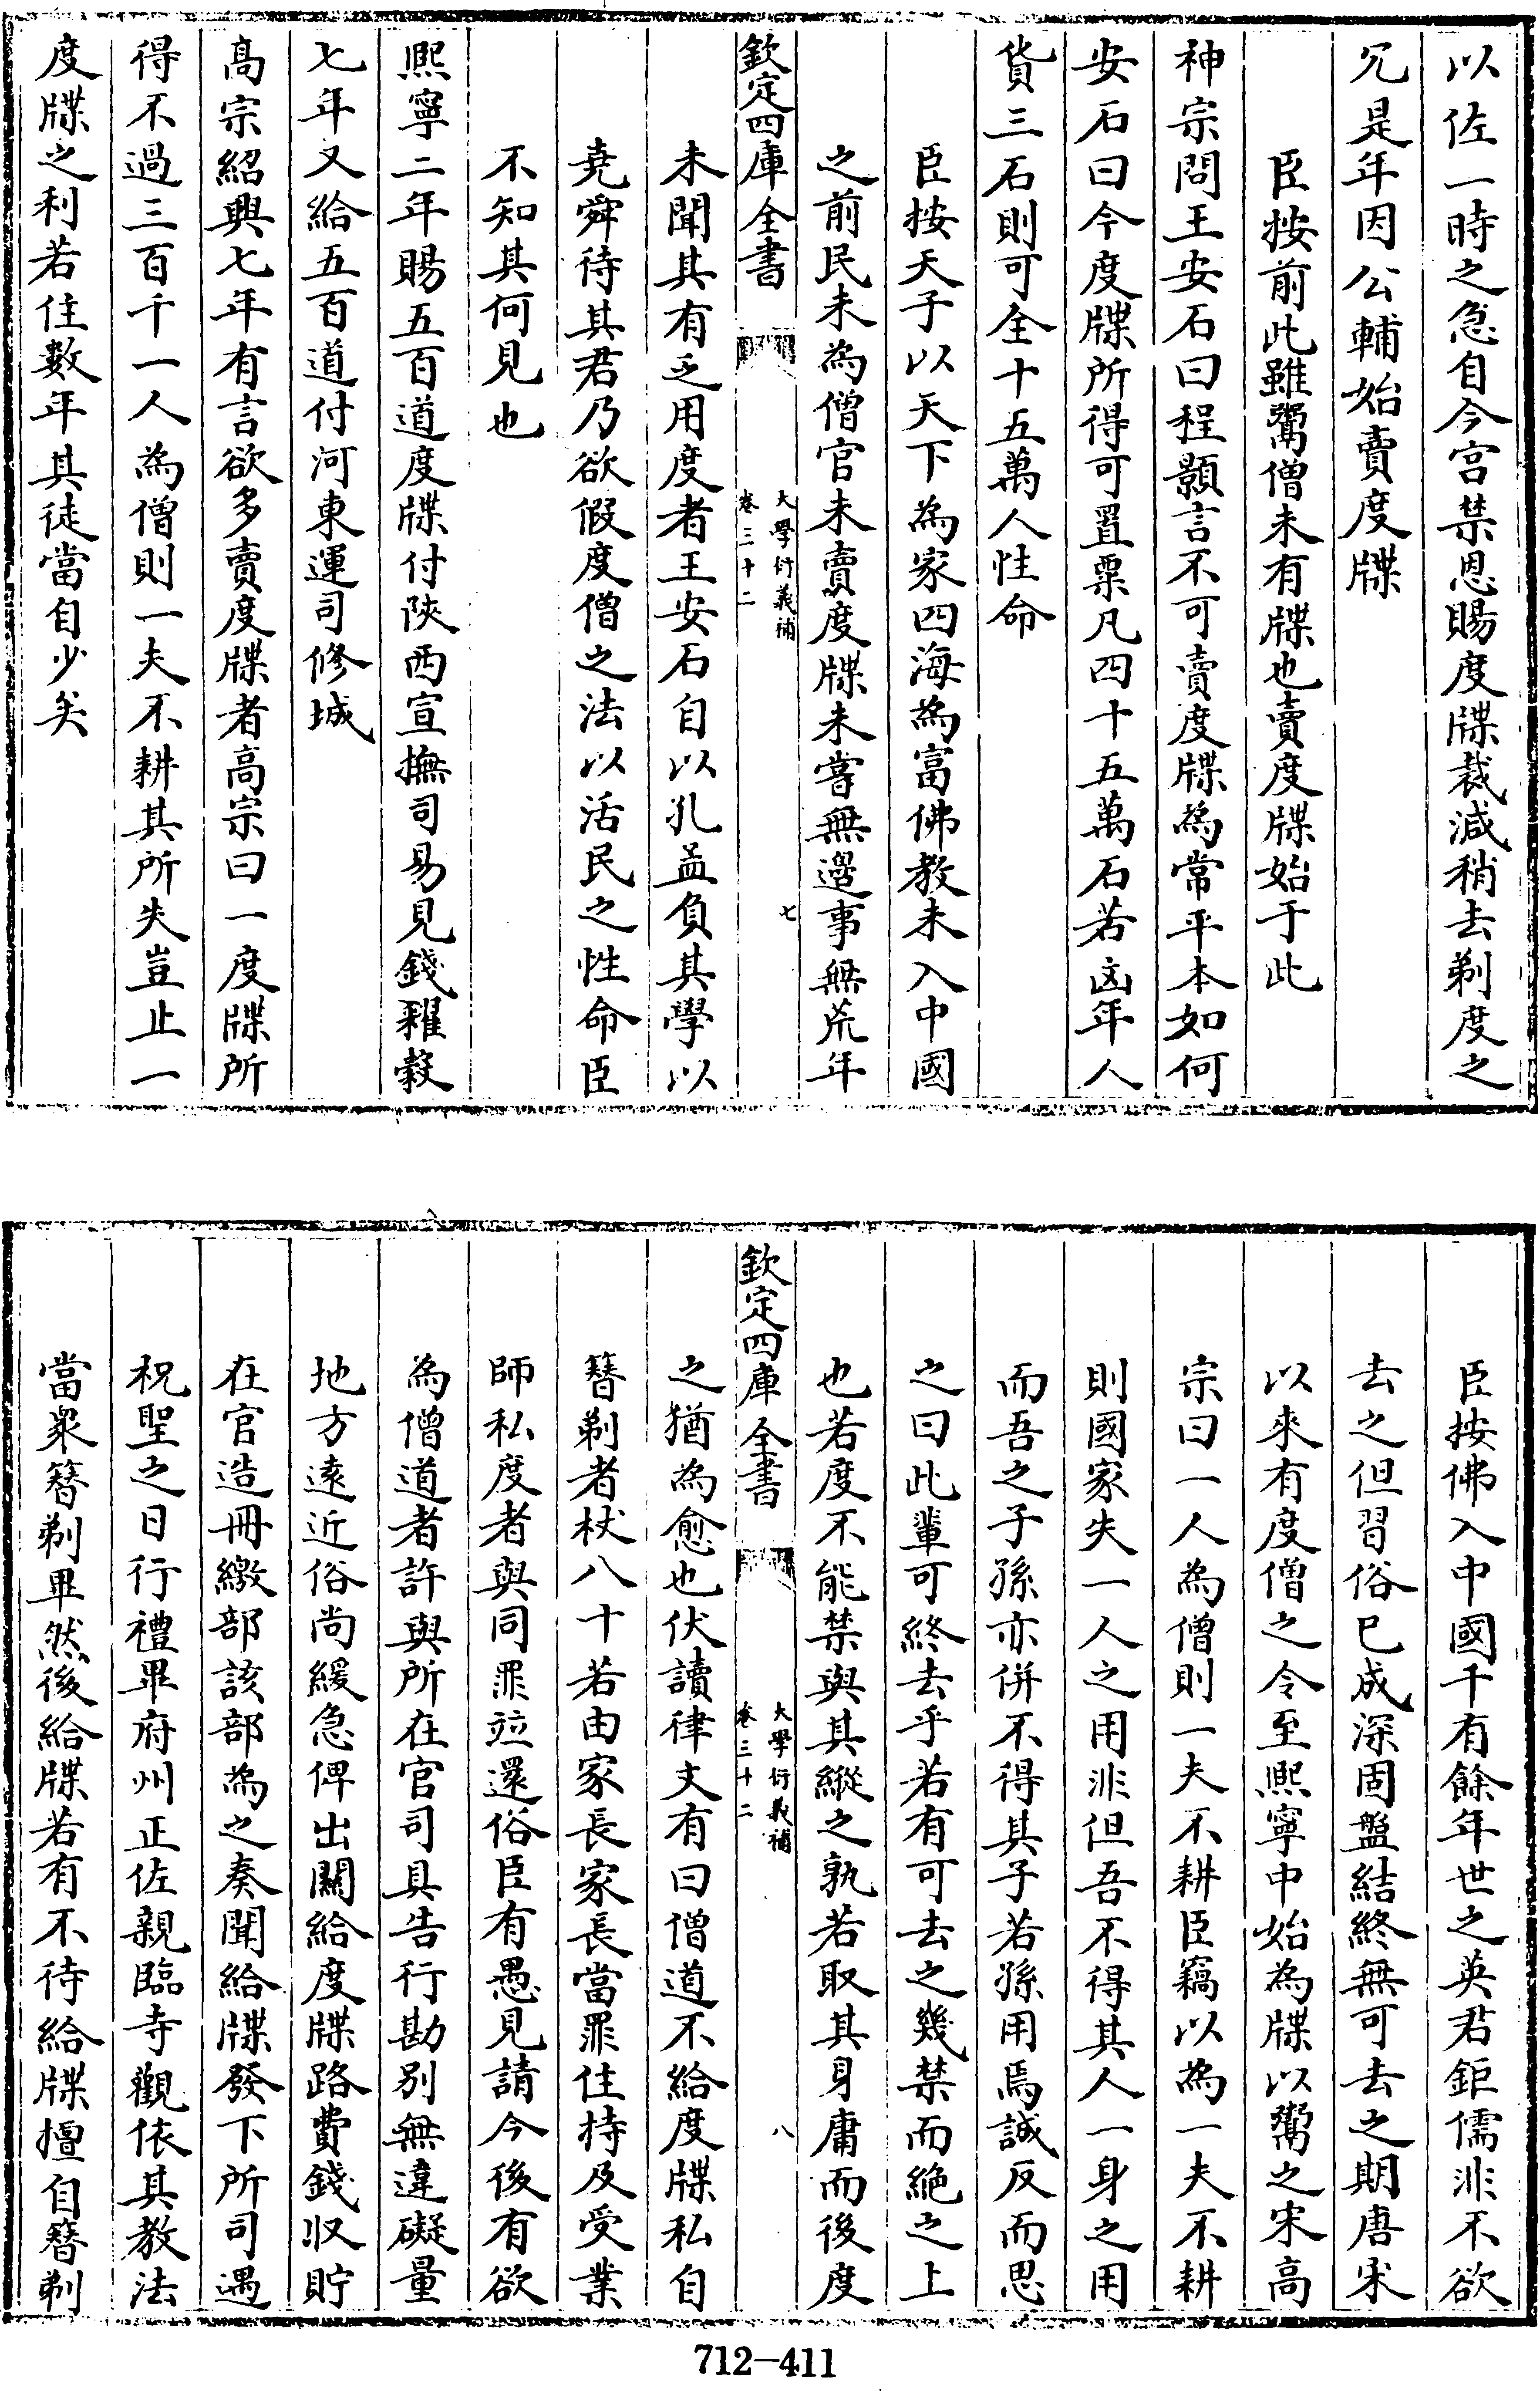 以佐一時之急自今宫禁恩賜度牒裁減稍去剃度之
冗是年因公輔始賣度牒
臣按前此雖鬻僧未有牒也賣度牒始于此
神宗問王安石曰程顥言不可賣度牒為常平本如何
安石曰今度牒所得可置粟凡四十五萬石若凶年人
貸三石則可全十五萬人性命
臣按天子以天下為家四海為富佛教未入中國
之前民未為僧官未賣度牒未嘗無邉事無荒年
欽定四庫全書
大學衍義補
卷三十二
七
未聞其有乏用度者王安石自以孔孟負其學以
堯舜待其君乃欲假度僧之法以活民之性命臣
不知其何見也
熈寧二年賜五百道度牒付陜西宣撫司易見錢糴榖
七年又給五百道付河東運司修城
高宗紹興七年有言欲多賣度牒者高宗曰一度牒所
得不過三百千一人為僧則一夫不耕其所失豈止一
度牒之利若住數年其徒當自少矣
臣按佛入中國千有餘年世之英君鉅儒非不欲
去之但習俗已成深固盤結終無可去之期唐宋
以來有度僧之令至熈寧中始為牒以鬻之宋高
宗曰一人為僧則一夫不耕臣竊以為一夫不耕
則國家失一人之用非但吾不得其人一身之用
而吾之子孫亦併不得其子若孫用焉誠反而思
之曰此輩可終去乎若有可去之幾禁而絶之上
也若度不能禁與其縱之孰若取其身庸而後度
欽定四庫全書
大學衍義補
卷三十二
八
之猶為愈也伏讀律文有曰僧道不給度牒私自
簪剃者杖八十若由家長家長當罪住持及受業
師私度者與同罪竝還俗臣有愚見請今後有欲
為僧道者許與所在官司具告行勘别無違礙量
地方逺近俗尚緩急俾出關給度牒路費錢収貯
在官造冊繳部該部為之奏聞給牒發下所司遇
祝聖之日行禮畢府州正佐親臨寺觀依其教法
當衆簪剃畢然後給牒若有不待給牒擅自簪剃
712-411